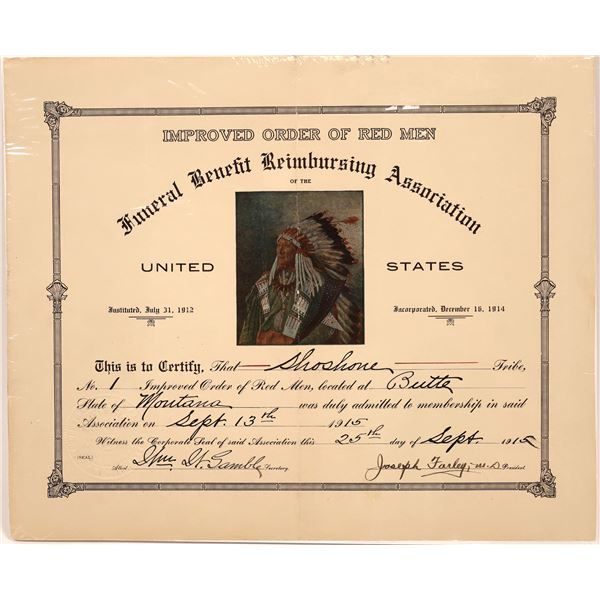 IMPROVED ORDER OF RED MEN
Funeral Benefit Reimbursing Association
OF THE
UNITED STATES
Instituted, July 31, 1912 Incorporated, December 15, 1914
This is to Certify, That Shoshone Tribe,
No. 1 Improved Order of Red Men, located at Butte
State of Montana was duly admitted to membership in said
Association on Sept. 13th 1915
Witness the Corporate Seal of said Association this 25th day of Sept. 1915
(SEAL)
Attest Wm. H. Gamble Secretary. Joseph Farley, M.D President